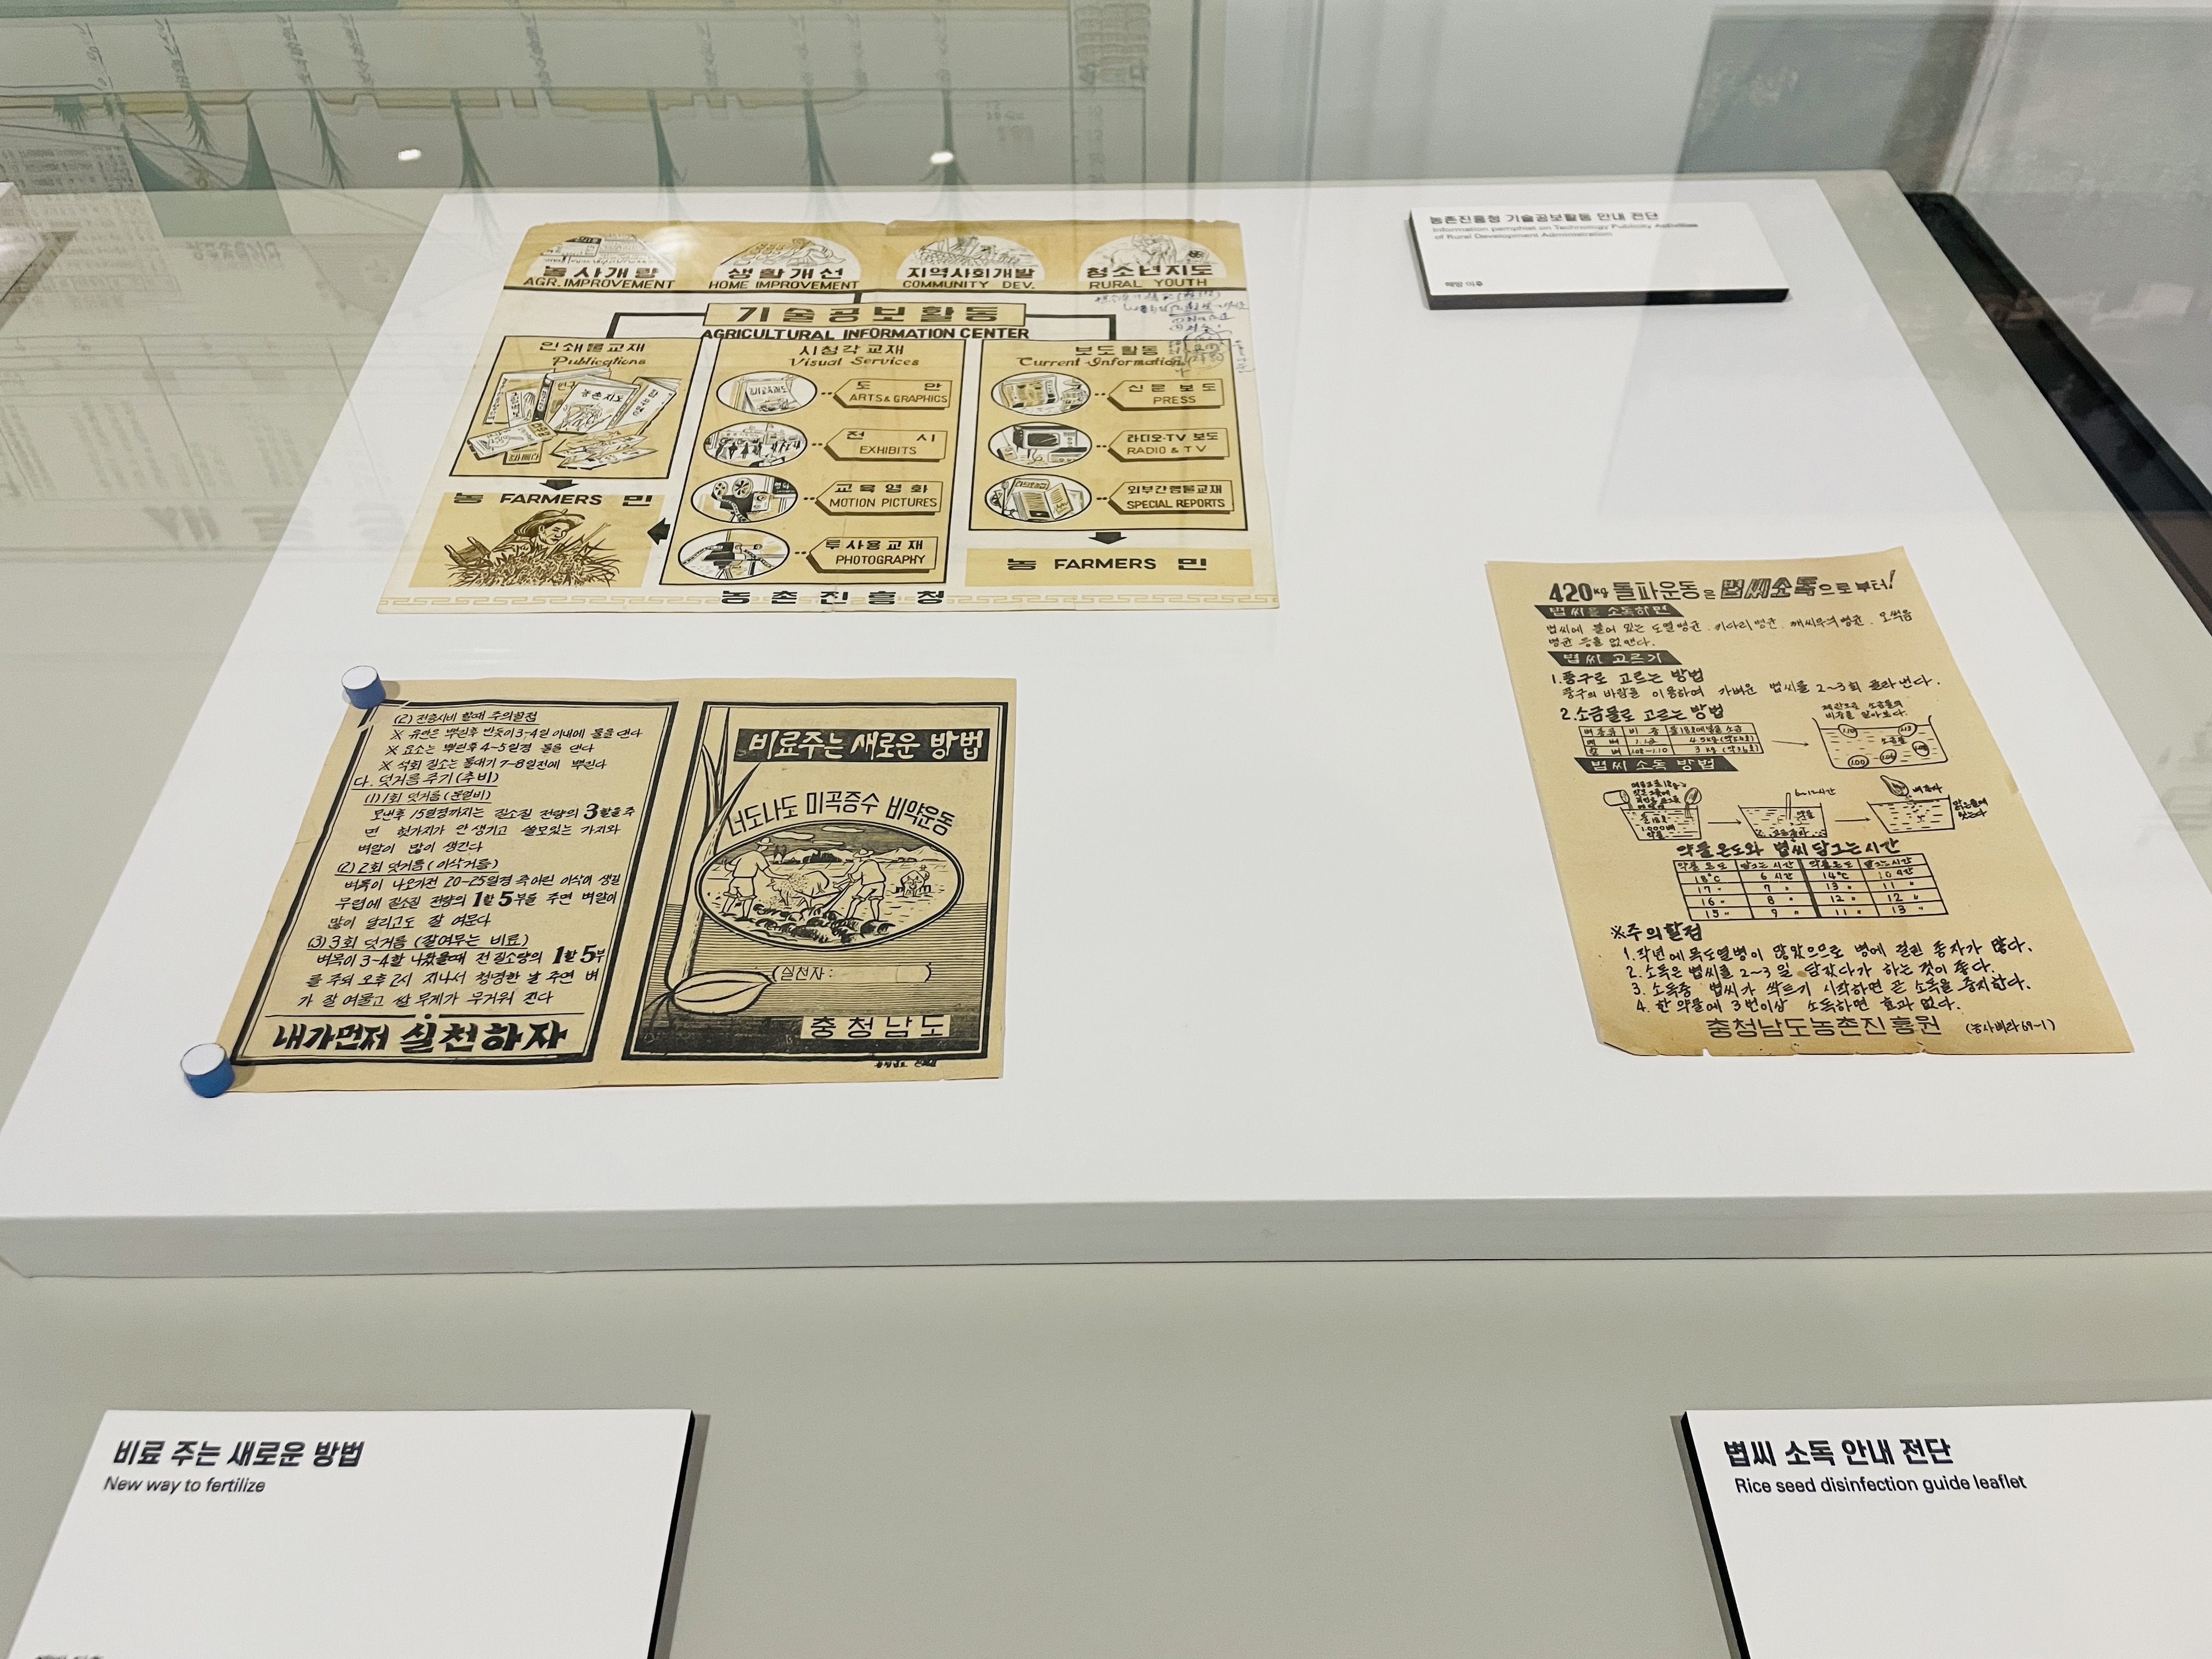 농사개량
AGR. IMPROVEMENT
생활개선
HOME IMPROVEMENT
지역사회개발
COMMUNITY DEV.
청소년지도
RURAL YOUTH
기술공보활동
AGRICULTURAL INFORMATION CENTER
인쇄물교재
Publications
농촌지도
시청각교재
Visual Services
도 안
ARTS & GRAPHICS
전 시
EXHIBITS
교육영화
MOTION PICTURES
투사용교재
PHOTOGRAPHY
보도활동
Current Information
신문보도
PRESS
라디오·TV 보도
RADIO & TV
외부간행물교재
SPECIAL REPORTS
농 FARMERS 민
농 FARMERS 민
농촌진흥청
농촌진흥청 기술공보활동 안내 전단
Information pamphlet on Technology Publicity Activities
of Rural Development Administration
해방 이후
(2) 전층시비 할때 주의할점
※ 유안은 뿌린후 반듯이 3-4일 이내에 물을 댄다
※ 요소는 뿌린후 4-5일경 물을 댄다
※ 석회 질소는 물대기 7-8일전에 뿌린다
다. 덧거름주기 (추비)
(1) 1회 덧거름 (분얼비)
모낸후 15일경까지는 질소질 전량의 3할을 주
면 헛가지가 안 생기고 쓸모있는 가지와
벼알이 많이 생긴다
(2) 2회 덧거름 (이삭거름)
벼목이 나오기전 20-25일경 즉 어린 이삭이 생길
무렵에 질소질 전량의 1할 5부를 주면 벼알이
많이 달리고도 잘 여문다
(3) 3회 덧거름 (잘여무는 비료)
벼목이 3-4할 나왔을때 전질소량의 1할 5부
를 주되 오후 2시 지나서 청명한 날 주면 벼
가 잘 여물고 쌀 무게가 무거워 진다
내가먼저 실천하자
비료주는 새로운 방법
너도나도 미곡증수 비약운동
(실천자: )
충청남도
420kg 돌파운동은 볍씨소독으로부터!
볍씨를 소독하면
볍씨에 붙어 있는 도열병균. 키다리병균. 깨씨무늬병균. 모썩음
병균 등을 없앤다.
볍씨 고르기
1. 풍구로 고르는 방법
풍구의 바람을 이용하여 가벼운 볍씨를 2~3회 골라낸다.
2. 소금물로 고르는 방법
볍씨 소독 방법
6~12시간
약물온도와 볍씨 담그는시간
약물온도 담그는시간 약물온도 담그는시간
18°C 6시간 14°C 10시간
17 〃 7 〃 13 〃 11 〃
16 〃 8 〃 12 〃 12 〃
15 〃 9 〃 11 〃 13 〃
※주의할점
1. 작년에 목도열병이 많았으므로 병에 걸린 종자가 많다.
2. 소독은 볍씨를 2~3일 담갔다가 하는 것이 좋다.
3. 소독중 볍씨가 싹트기 시작하면 곧 소독을 중지한다.
4. 한 약물에 3번이상 소독하면 효과 없다.
충청남도농촌진흥원 (농사삐라 69-1)
비료 주는 새로운 방법
New way to fertilize
볍씨 소독 안내 전단
Rice seed disinfection guide leaflet